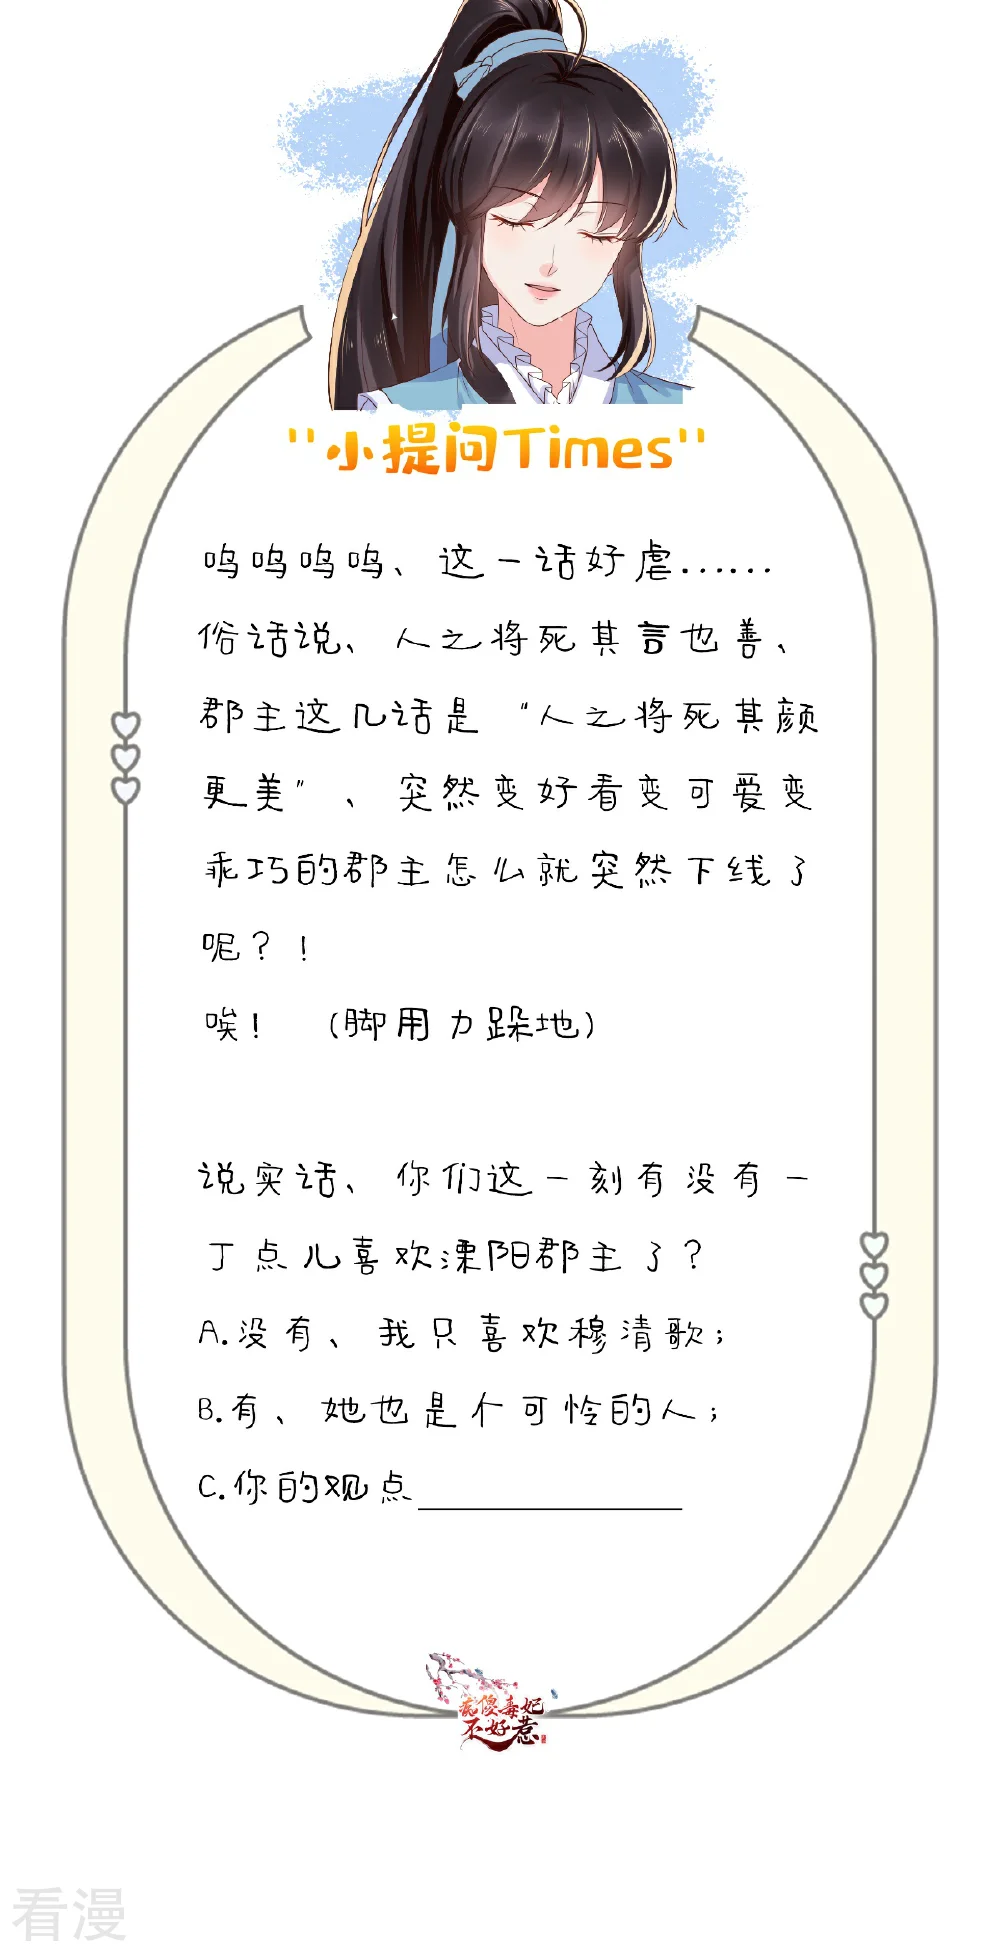 "小提问Times"
呜呜呜呜、这一话好虐……
俗话说、人之将死其言也善、
郡主这几话是“人之将死其颜
更美”、突然变好看变可爱变
乖巧的郡主怎么就突然下线了
呢?!
唉! (脚用力跺地)
说实话、你们这一刻有没有一
丁点儿喜欢溧阳郡主了?
A.没有、我只喜欢穆清歌;
B.有、她也是个可怜的人;
C.你的观点
毒妃
不好惹
看漫